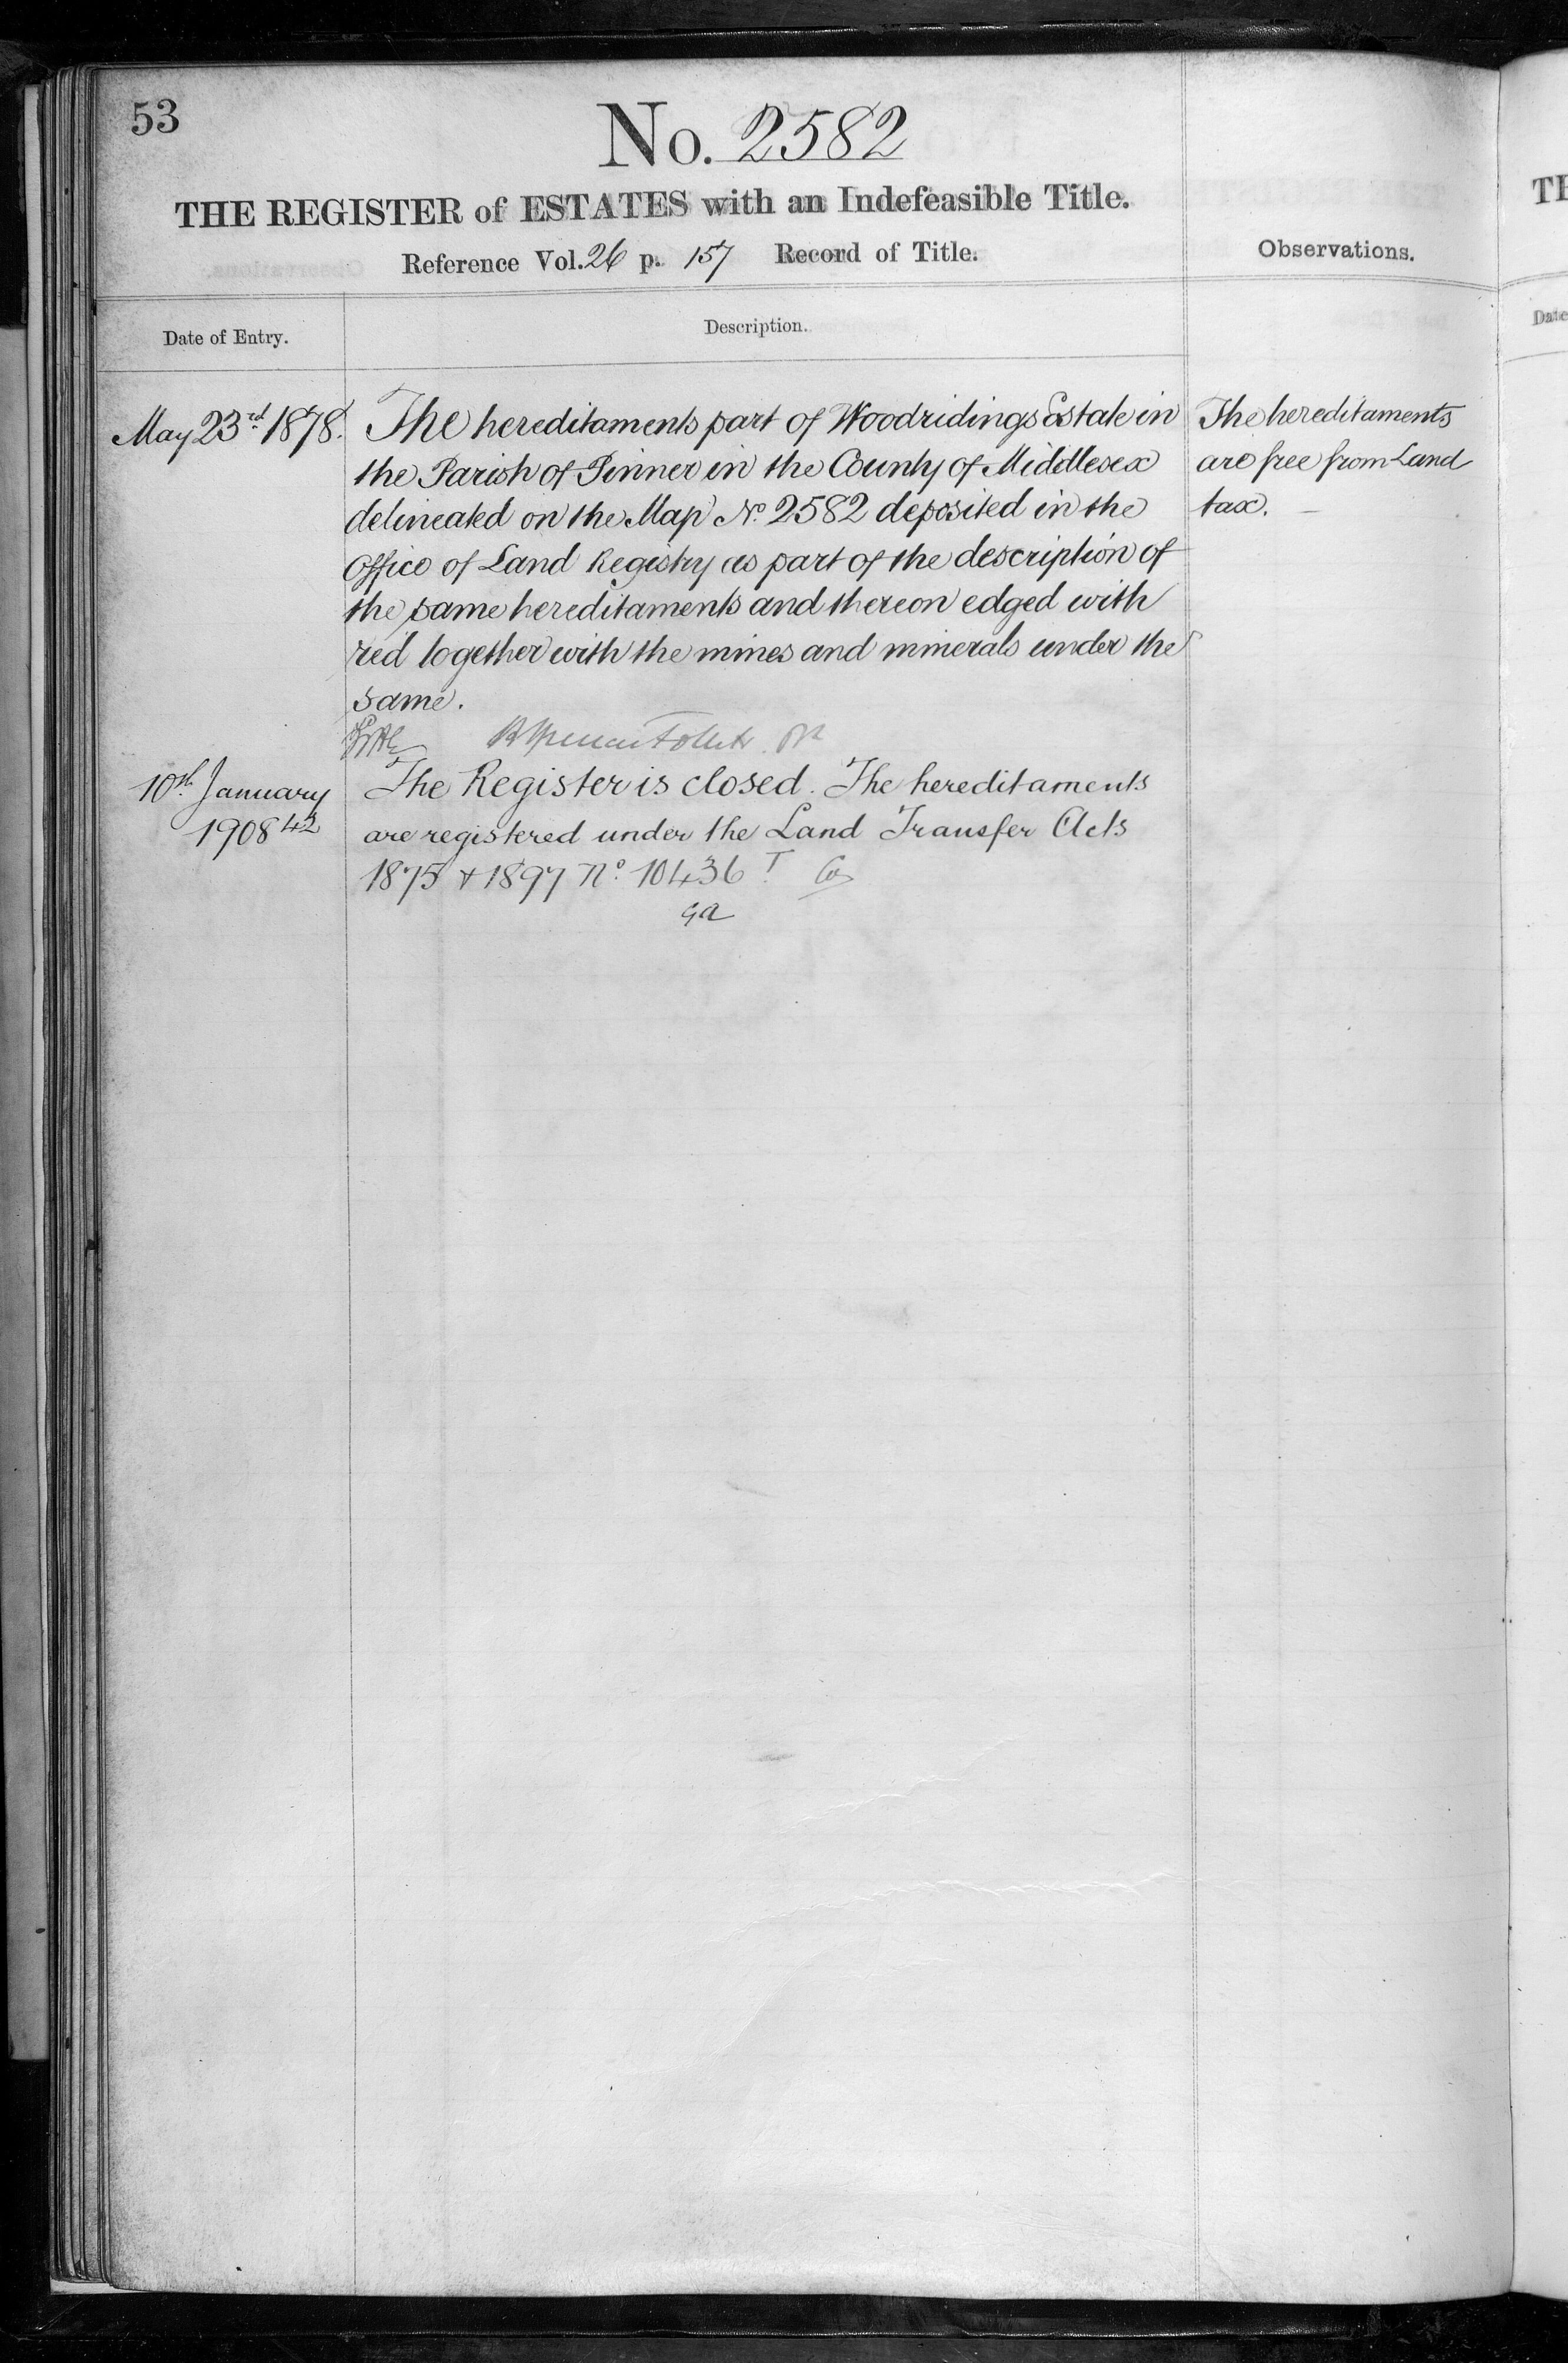 53
No. 2582
THE REGISTER of ESTATES with an Indefeasible Title.
Reference Vol. 26 p. 157 Record of Title.
Observations.
Date of Entry.
Description.
May 23rd 1878.
The hereditaments part of Woodridings Estate in
the Parish of Pinner in the County of Middlesex
delineated on the Map No. 2582 deposited in the
Office of Land Registry as part of the description of
the same hereditaments and thereon edged with
red together with the mines and minerals under the
same.
The hereditaments
are free from Land
tax.
10th January
1908 42
The Register is closed. The hereditaments
are registered under the Land Transfer Acts
1875 & 1897 No. 10436 T
GA
TH
Date